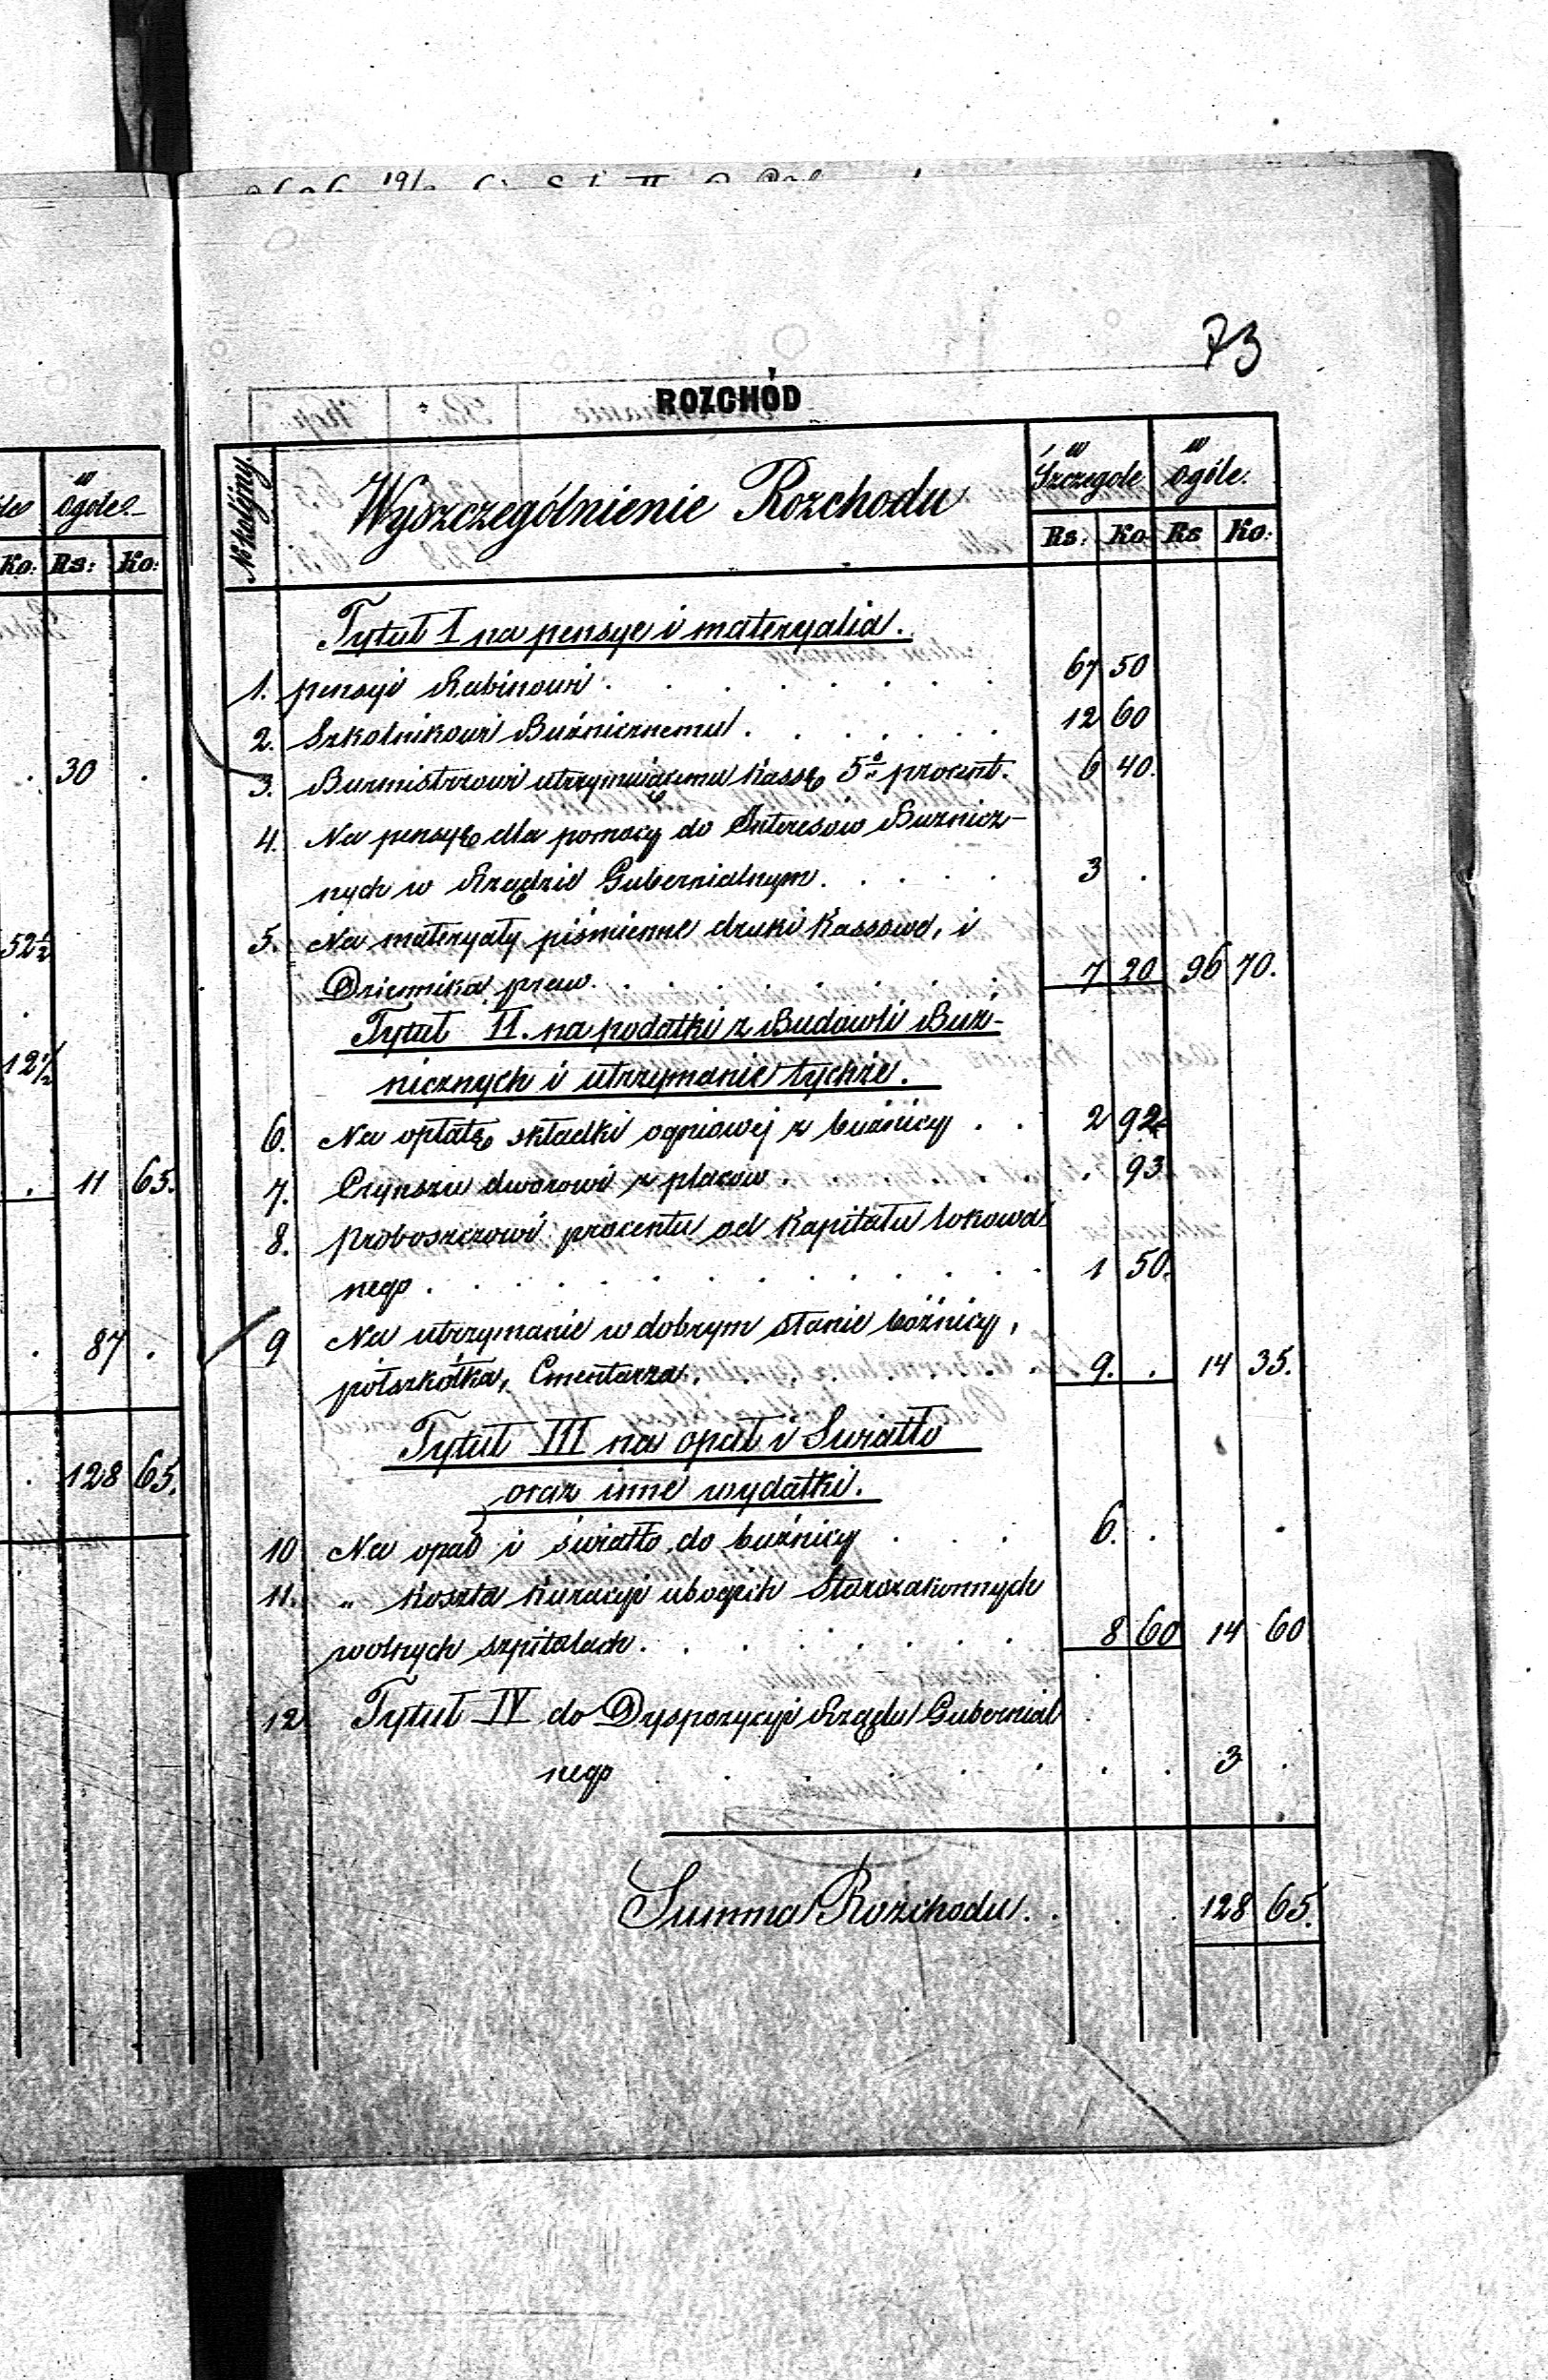 73
ROZCHÓD
ogóle
Ko: Rs: Ko:
30 .
52½
12½
. 11 65.
. 87 .
. 128 65.
No kolejny. Wyszczególnienie Rozchodu w Szczególe w Ogóle.
Rs: Ko Rs Ko:
Tytuł I na pensye i materyalia.
1. pensyi Rabinowi . . . . . . . . 67 50
2. Szkolnikowi Buźnicznemu . . . . . . . 12 60
3. Burmistrzowi utrzymuiącemu Kassę 5% procent. 6 40.
4. Na pensyę dla pomocy do Interesów Buźnicz-
nych w Rządzie Gubernialnym . . . . . 3 .
5. Na materyały piśmienne druki Kassowe, i
Dziennika praw. . . . . . . . . 7 20 96 70.
Tytuł II. na podatki z Budowli Buź-
nicznych i utrzymanie tychże.
6. Na opłatę składki ogniowej z buźnicy . . 2 92
7. Czynszu dworowi z placow . . . . . . 93
8. proboszczowi procentu od Kapitału lokowa
nego . . . . . . . . . . . . 1 50.
9 Na utrzymanie w dobrym stanie bóźnicy,
połszkółka, Cmentarza. . . . . . . 9. . 14 35.
Tytuł III na opał i Swiatło
oraz inne wydatki.
10 Na opał i światło do buźnicy . . . 6. .
11. „ Koszta Kuracyi ubogich Starozakonnych
wolnych szpitalach . . . . . . . 8 60 14 60
12 Tytuł IV do Dyspozycyi Rządu Gubernial
nego . . . . . . . . 3 .
Summa Rozchodu . . . . 128 65.